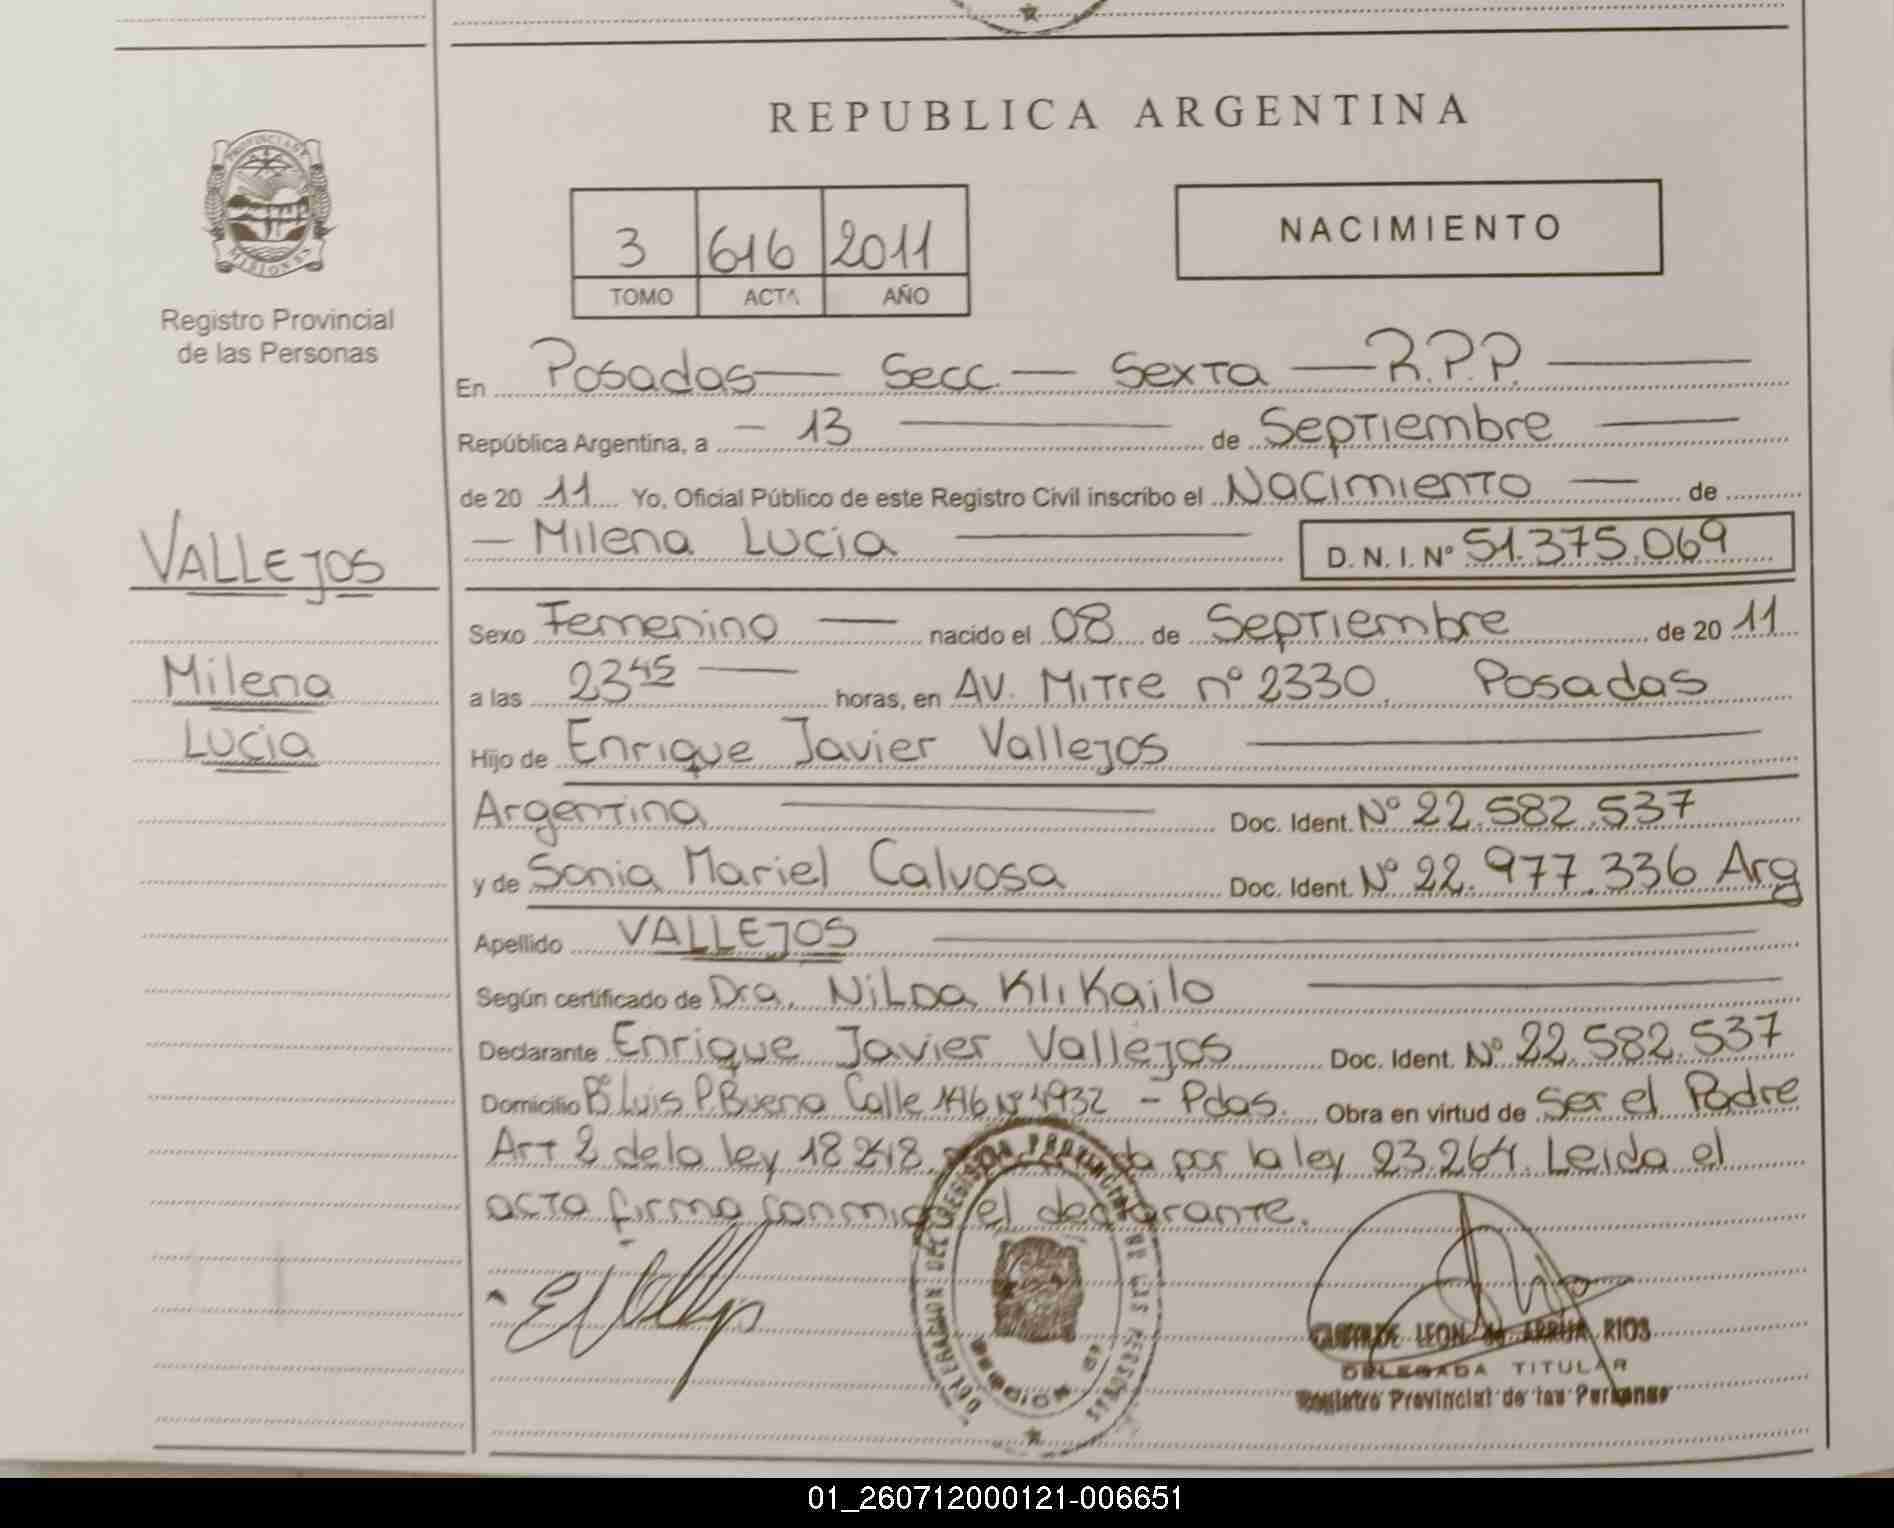 REPUBLICA ARGENTINA
PROVINCIA DE MISIONES
Registro Provincial
de las Personas
3 616 2011
TOMO ACTA AÑO
NACIMIENTO
En Posadas — Secc. — Sexta — R.P.P. —
República Argentina, a — 13 — de Septiembre —
de 20 11 Yo, Oficial Público de este Registro Civil inscribo el Nacimiento — de
— Milena Lucia — D. N. I. Nº 51.375.069
VALLEJOS
Milena
Lucia
Sexo Femenino — nacido el 08 de Septiembre de 20 11
a las 23 45 — horas, en AV. Mitre nº 2330. Posadas
Hijo de Enrique Javier Vallejos —
Argentina — Doc. Ident. Nº 22.582.537
y de Sonia Mariel Calvosa Doc. Ident. Nº 22.977.336 Arg
Apellido VALLEJOS —
Según certificado de Dra. Nilda Klikailo —
Declarante Enrique Javier Vallejos Doc. Ident. Nº 22.582.537
Domicilio Bº Luis P. Buena Calle 146 Nº 4932 - Pdas. Obra en virtud de Ser el Padre
Art 2 de la ley 18248 por la ley 23.264. Leida el
acta firma conmigo el declarante.
DELEGACION DEL REGISTRO PROVINCIAL DE LAS PERSONAS
LEON de ARRUA RIOS
DELEGADA TITULAR
Registro Provincial de las Personas
01_260712000121-006651